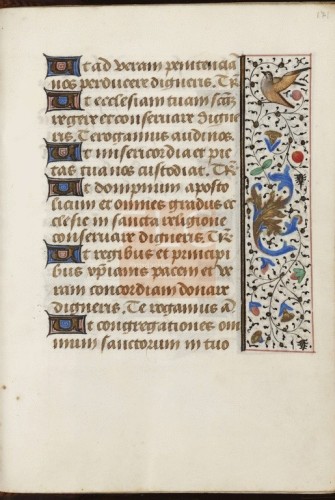 Ut ad veram penitencia
nos perducere digneris. Te R
Ut ecclesiam tuam scam
regere et conservare digne
ris. Te rogamus audi nos.
Ut misericordia et pie
tas tua nos custodiat. Te R
Ut dompnum aposto
licum et omnes gradus ec
clesie in sancta religione
conservare digneris. Te R
Ut regibus et principi
bus xpianis pacem et ve
ram concordiam donare
digneris. Te rogamus a
Ut congregationes om
nium sanctorum in tuo